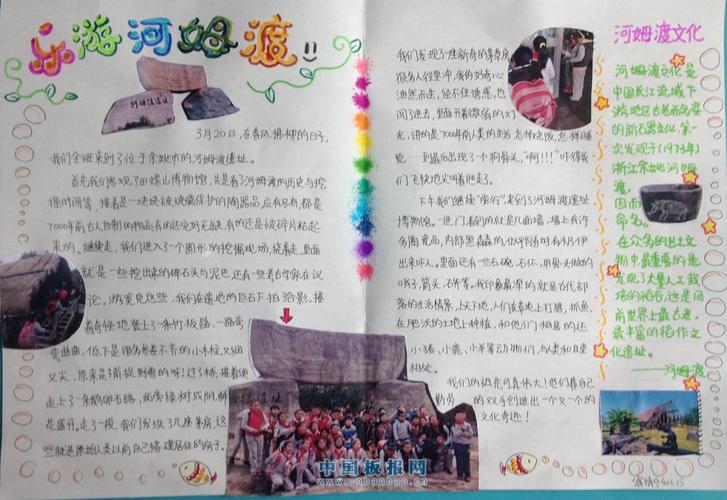 乐游河姆渡
3月20日,在春风拂柳的日子,
我们全班来到了位于余姚市的河姆渡遗址。
首先我们参观了田螺山博物馆,先是看了河姆渡的历史与挖
掘时间等,接着是一块块被玻璃保护的陶器品,应有尽有,都是
7000年前古人自制的物品,有的还完好无缺,有的是被碎片粘起
来的。继续走,我们进入了一个圆形的挖掘现场,绕着走,里面
就是一些挖出来的碑石头与泥巴,还有一些考古学家在议
论。游览完这些,我们在遗地的巨石下拍了合影,接
着奇怪地登上了一条竹板路,一路弯
弯曲曲,低下是很多参差不齐的小木桩,又细
又尖,原来是捕捉野兽的呀!过了桥,接着便
走上了一条鹅卵石路,两旁绿树成阴,鲜
花盛开。走了一段,我们发现了几座茅房,这
些就是原始人类以前自己搭建居住的房子。
我们发现了一座新奇的茅草房,
很多人往里冲,我的好奇心
油然而生,经不住诱惑,也
闯了进去,里面开着微弱的灯
光,讲的是7000年前人类的生活,怎样烧饭,怎样睡
觉,…到最后出现了个狗骨头,“啊!!!”吓得我
们飞快地尖叫着逃走了。
下午我们继续“游行”,来到了河姆渡遗址
博物馆。一进门看到的就是几面墙,墙上有许
多陶瓷品,内部黑森森的,似乎随时有木乃伊
出来吓人,里面还有一些石碗、石休,用骨头做的
哨子,箭头,石斧等。我印象最深的就是古代部
落的生活情景,上天下地,人们在草地上打猎、抓鱼,
在肥沃的土地上种植,和他们相居的还
小猪,小鹿,小羊等动物们,与人类和目
相处。
我们的祖先可真伟大!他们靠自己
勤劳的双手创造出一个又一个的
文化奇迹!
河姆渡文化
河姆渡文化是
中国长江流域下
游地区古老而多姿
的新石器文化,第一
次发现于(1973年)
浙江余姚河姆
渡,
因而
命名。
在众多的出土文
物中最重要的是
发现了大量人工栽
培的稻谷,这是目
前世界上最古老、
最丰富的稻作文
化遗址。
——河姆渡
中国板报网
www.cnbanbao.com